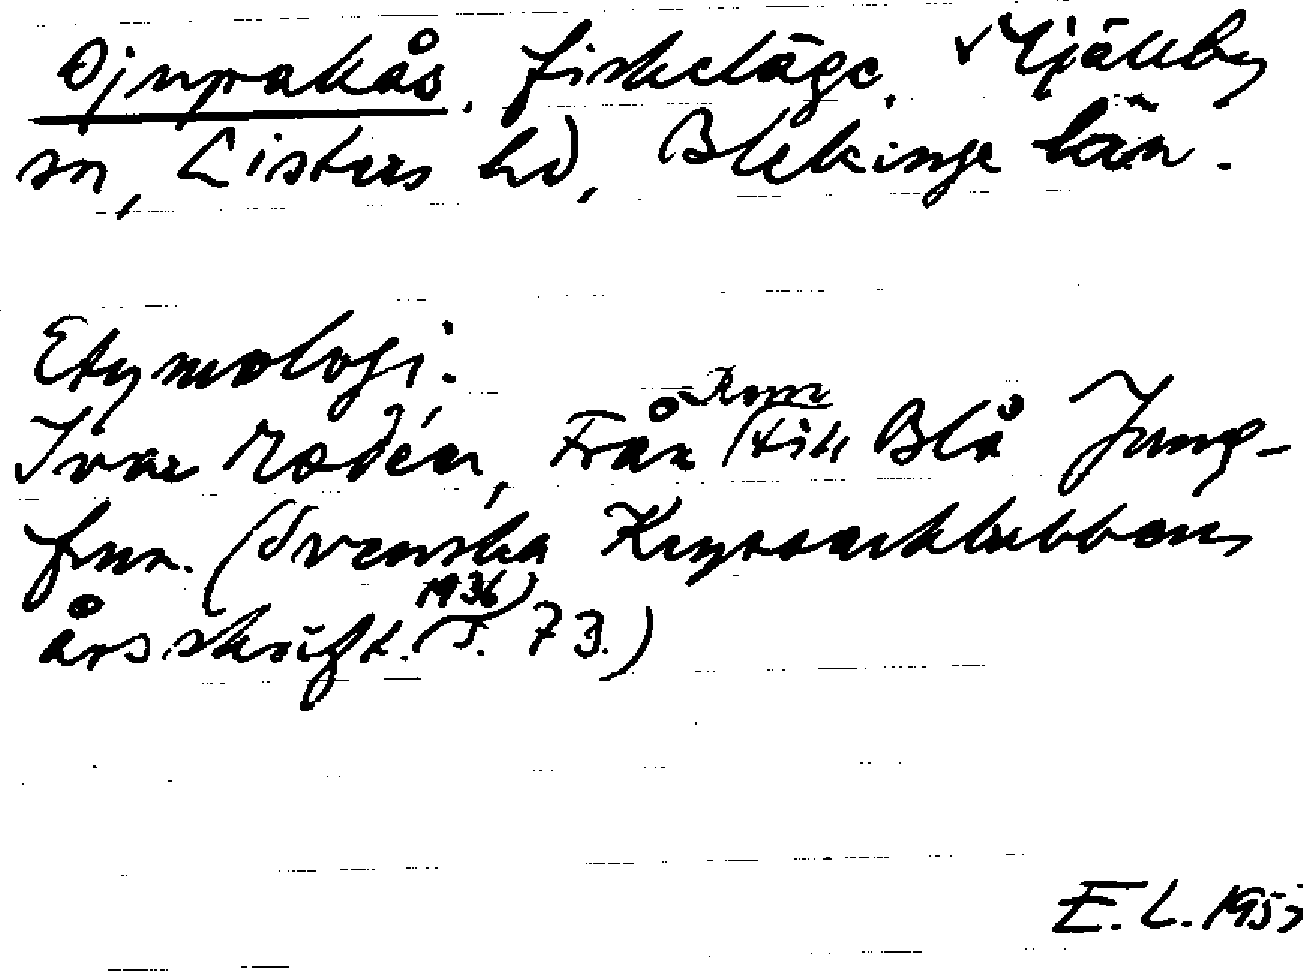 Djuprakås. fiskeläge, Mjällby
sn, Listers hd, Blekinge län.
Etymologi.
Ivar Modéer, Från till Blå Jung-
frun. (Svenska Kryssarklubbens
årsskrift. 1936) S. 73.)
E. L. 1957